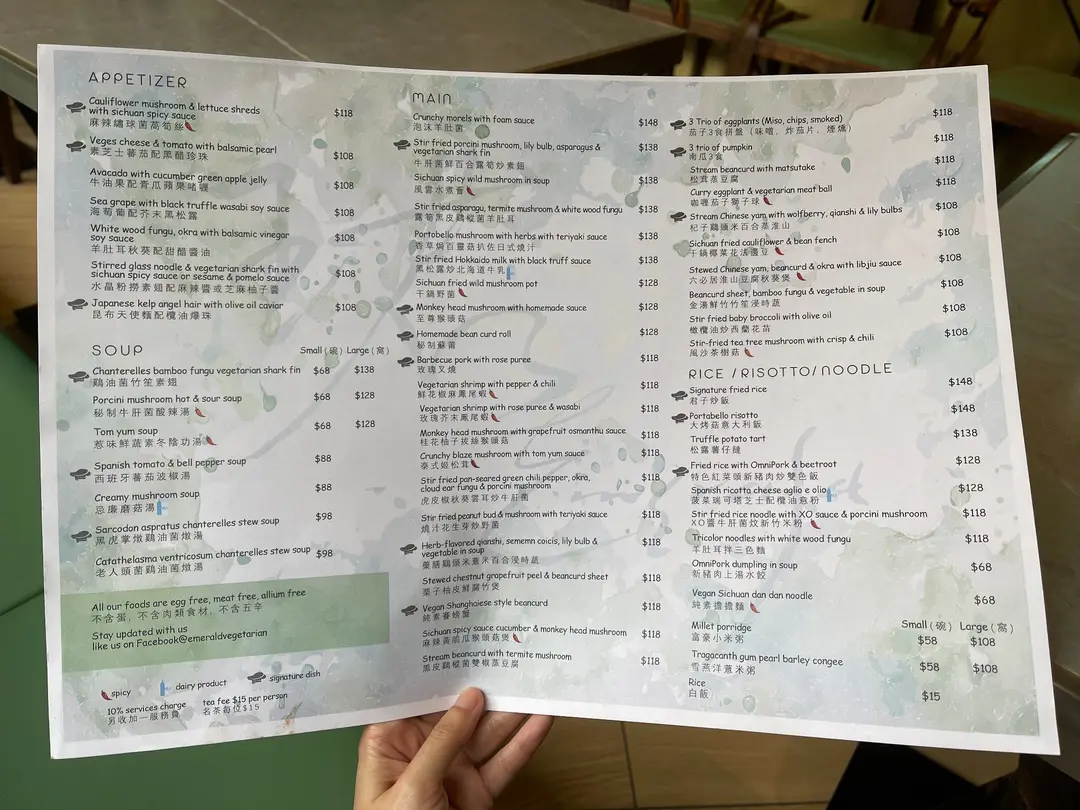 APPETIZER
Cauliflower mushroom & lettuce shreds
with sichuan spicy sauce
$118
麻辣繡球菌萵筍絲
Veges cheese & tomato with balsamic pearl
$108
素芝士蕃茄配黑醋珍珠
Avocado with cucumber green apple jelly
$108
牛油果配青瓜蘋果啫喱
Sea grape with black truffle wasabi soy sauce
$108
海萄葡配芥末黑松露
White wood fungu, okra with balsamic vinegar
soy sauce
$108
羊肚耳秋葵配甜醋醬油
Stirred glass noodle & vegetarian shark fin with
sichuan spicy sauce or sesame & pomelo sauce
$108
水晶粉撈素翅配麻辣醬或芝麻柚子醬
Japanese kelp angel hair with olive oil caviar
$108
昆布天使麵配欖油爆珠
SOUP
Small (碗) Large (窩)
Chanterelles bamboo fungu vegetarian shark fin $68 $138
鷄油菌竹笙素翅
Porcini mushroom hot & sour soup $68 $128
秘制牛肝菌酸辣湯
Tom yum soup $68 $128
惹味鮮蔬素冬陰功湯
Spanish tomato & bell pepper soup $88
西班牙蕃茄波椒湯
Creamy mushroom soup $88
忌廉蘑菇湯
Sarcodon aspratus chanterelles stew soup $98
黑虎掌燉鷄油菌燉湯
Catathelasma ventricosum chanterelles stew soup $98
老人頭菌鷄油菌燉湯
All our foods are egg free, meat free, allium free
不含蛋, 不含肉類食材, 不含五辛
Stay updated with us
like us on Facebook@emeraldvegetarian
spicy
dairy product
signature dish
10% services charge
另收加一服務費
tea fee $15 per person
名茶每位$15
MAIN
Crunchy morels with foam sauce $148
泡沫羊肚菌
Stir fried porcini mushroom, lily bulb, asparagus &
vegetarian shark fin
$138
牛肝菌鮮百合露筍炒素翅
Sichuan spicy wild mushroom in soup $138
風雲水煮薈
Stir fried asparagu, termite mushroom & white wood fungu $138
露筍黑皮鷄樅菌羊肚耳
Portobello mushroom with herbs with teriyaki sauce $138
香草焗百靈菇扒佐日式燒汁
Stir fried Hokkaido milk with black truff sauce $138
黑松露炒北海道牛乳
Sichuan fried wild mushroom pot $128
干鍋野菌
Monkey head mushroom with homemade sauce $128
至尊猴頭菇
Homemade bean curd roll $128
秘制蘇菌
Barbecue pork with rose puree $118
玫瑰叉燒
Vegetarian shrimp with pepper & chili $118
鮮花椒麻鳳尾蝦
Vegetarian shrimp with rose puree & wasabi $118
玫瑰芥末鳳尾蝦
Monkey head mushroom with grapefruit osmanthu sauce $118
桂花柚子拔絲猴頭菇
Crunchy blaze mushroom with tom yum sauce $118
泰式姬松茸
Stir fried pan-seared green chili pepper, okra,
cloud ear fungu & porcini mushroom
$118
虎皮椒秋葵雲耳炒牛肝菌
Stir fried peanut bud & mushroom with teriyaki sauce $118
燒汁花生芽炒野菌
Herb-flavored qianshi, sememn coicis, lily bulb &
vegetable in soup
$118
藥膳鷄頭米薏米百合浸時蔬
Stewed chestnut grapefruit peel & beancurd sheet $118
栗子柚皮鮮腐竹煲
Vegan Shanghaiese style beancurd $118
純素賽螃蟹
Sichuan spicy sauce cucumber & monkey head mushroom $118
麻辣黃脆瓜猴頭菇煲
Stream beancurd with termite mushroom $118
黑皮鷄樅菌雙椒蒸豆腐
3 Trio of eggplants (Miso, chips, smoked) $118
茄子3食拼盤 (味噌, 炸茄片, 煙燻)
3 trio of pumpkin $118
南瓜3食
Stream beancurd with matsutake $118
松茸蒸豆腐
Curry eggplant & vegetarian meat ball $118
咖喱茄子獅子球
Stream Chinese yam with wolfberry, qianshi & lily bulbs $108
杞子鷄頭米百合蒸淮山
Sichuan fried cauliflower & bean fench $108
干鍋椰菜花法邊豆
Stewed Chinese yam, beancurd & okra with libjiu sauce $108
六必居淮山豆腐秋葵煲
Beancurd sheet, bamboo fungu & vegetable in soup $108
金湯鮮竹竹笙浸時蔬
Stir fried baby broccoli with olive oil $108
橄欖油炒西蘭花苗
Stir-fried tea tree mushroom with crisp & chili $108
風沙茶樹菇
RICE /RISOTTO/NOODLE
Signature fried rice $148
君子炒飯
Portabello risotto $148
大烤菇意大利飯
Truffle potato tart $138
松露薯仔撻
Fried rice with OmniPork & beetroot $128
特色紅菜頭新豬肉炒雙色飯
Spanish ricotta cheese aglio e olio $128
菠菜瑞可塔芝士配欖油意粉
Stir fried rice noodle with XO sauce & porcini mushroom $118
XO醬牛肝菌炆新竹米粉
Tricolor noodles with white wood fungu $118
羊肚耳拌三色麵
OmniPork dumpling in soup $68
新豬肉上湯水餃
Vegan Sichuan dan dan noodle $68
純素擔擔麵
Small (碗) Large (窩)
Millet porridge $58 $108
富豪小米粥
Tragacanth gum pearl barley congee $58 $108
雪燕洋薏米粥
Rice $15
白飯